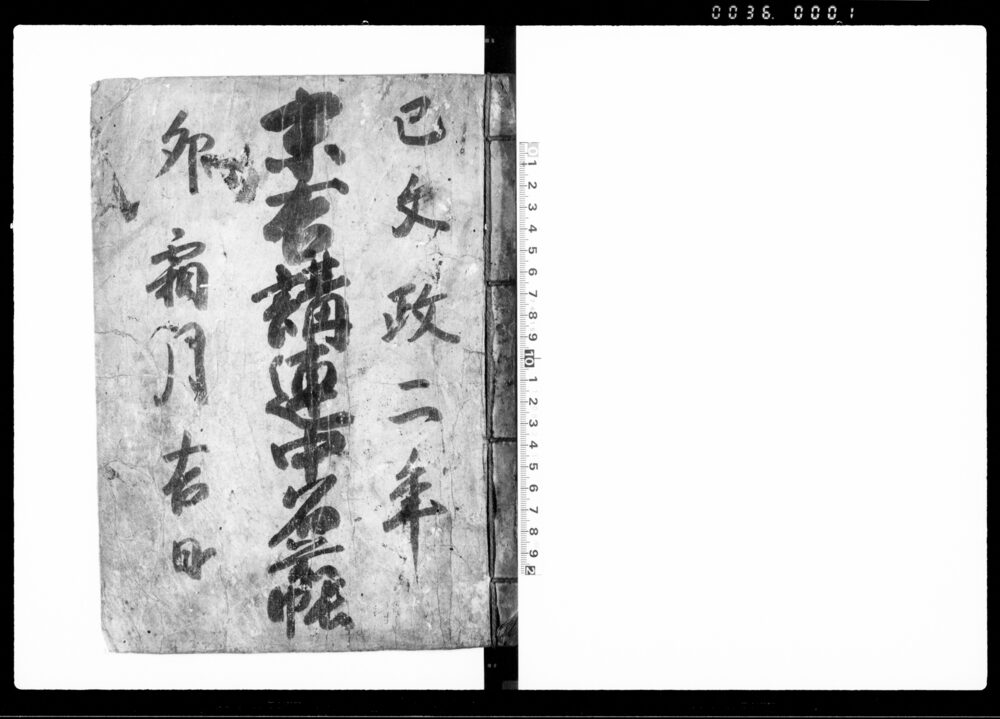 0036 0001
己文政二年
末吉講連中名前帳
卯霜月吉日
0 1 2 3 4 5 6 7 8 9 10 1 2 3 4 5 6 7 8 9 2